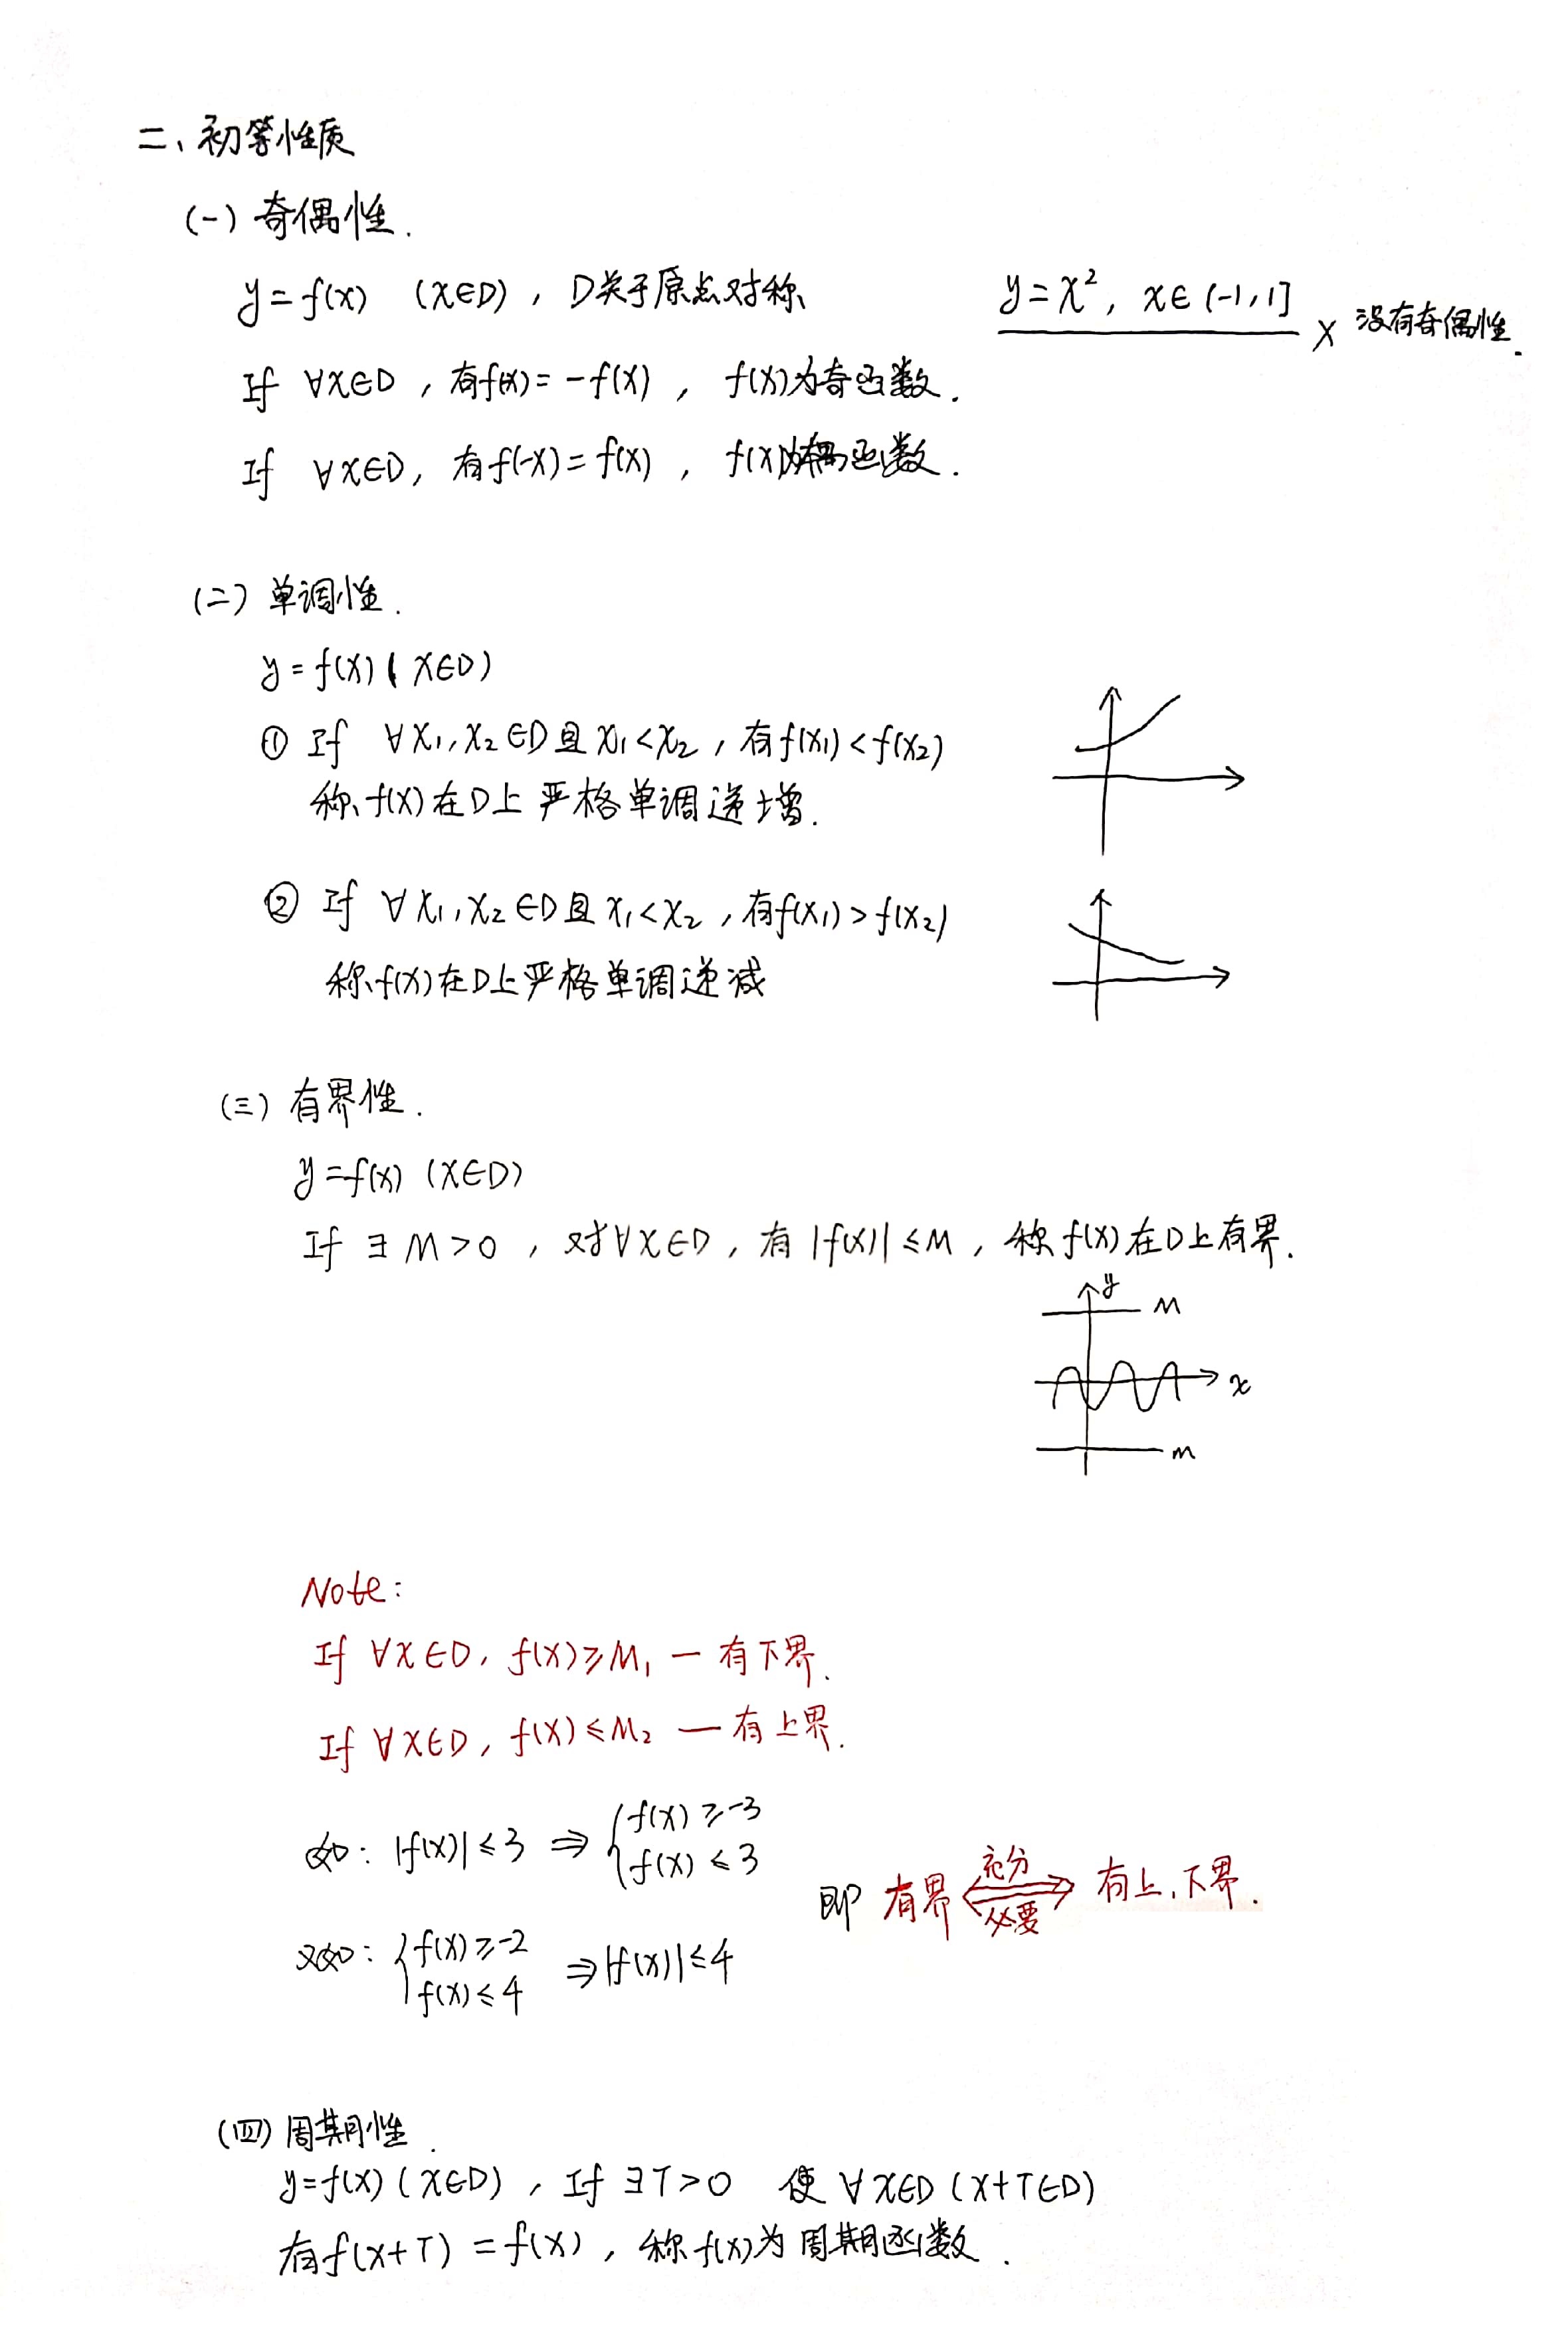 二、初等性质
(一) 奇偶性.
y=f(x) (x∈D), D关于原点对称
y=x², x∈(-1,1] × 没有奇偶性.
If ∀x∈D, 有f(x)=-f(x), f(x)为奇函数.
If ∀x∈D, 有f(-x)=f(x), f(x)为偶函数.
(二) 单调性.
y=f(x) (x∈D)
① If ∀x₁,x₂∈D且x₁<x₂, 有f(x₁)<f(x₂)
称f(x)在D上严格单调递增.
② If ∀x₁,x₂∈D且x₁<x₂, 有f(x₁)>f(x₂)
称f(x)在D上严格单调递减
(三) 有界性.
y=f(x) (x∈D)
If ∃M>0, 对∀x∈D, 有|f(x)|≤M, 称f(x)在D上有界.
y
M
x
m
Note:
If ∀x∈D, f(x)≥M₁ — 有下界.
If ∀x∈D, f(x)≤M₂ — 有上界.
如: |f(x)|≤3 ⇒ { f(x)≥-3
f(x)≤3
即 有界 充分 ⇔ 必要 有上、下界.
又如: { f(x)≥-2
f(x)≤4 ⇒|f(x)|≤4
(四) 周期性.
y=f(x) (x∈D), If ∃T>0 使∀x∈D (x+T∈D)
有f(x+T)=f(x), 称f(x)为周期函数.